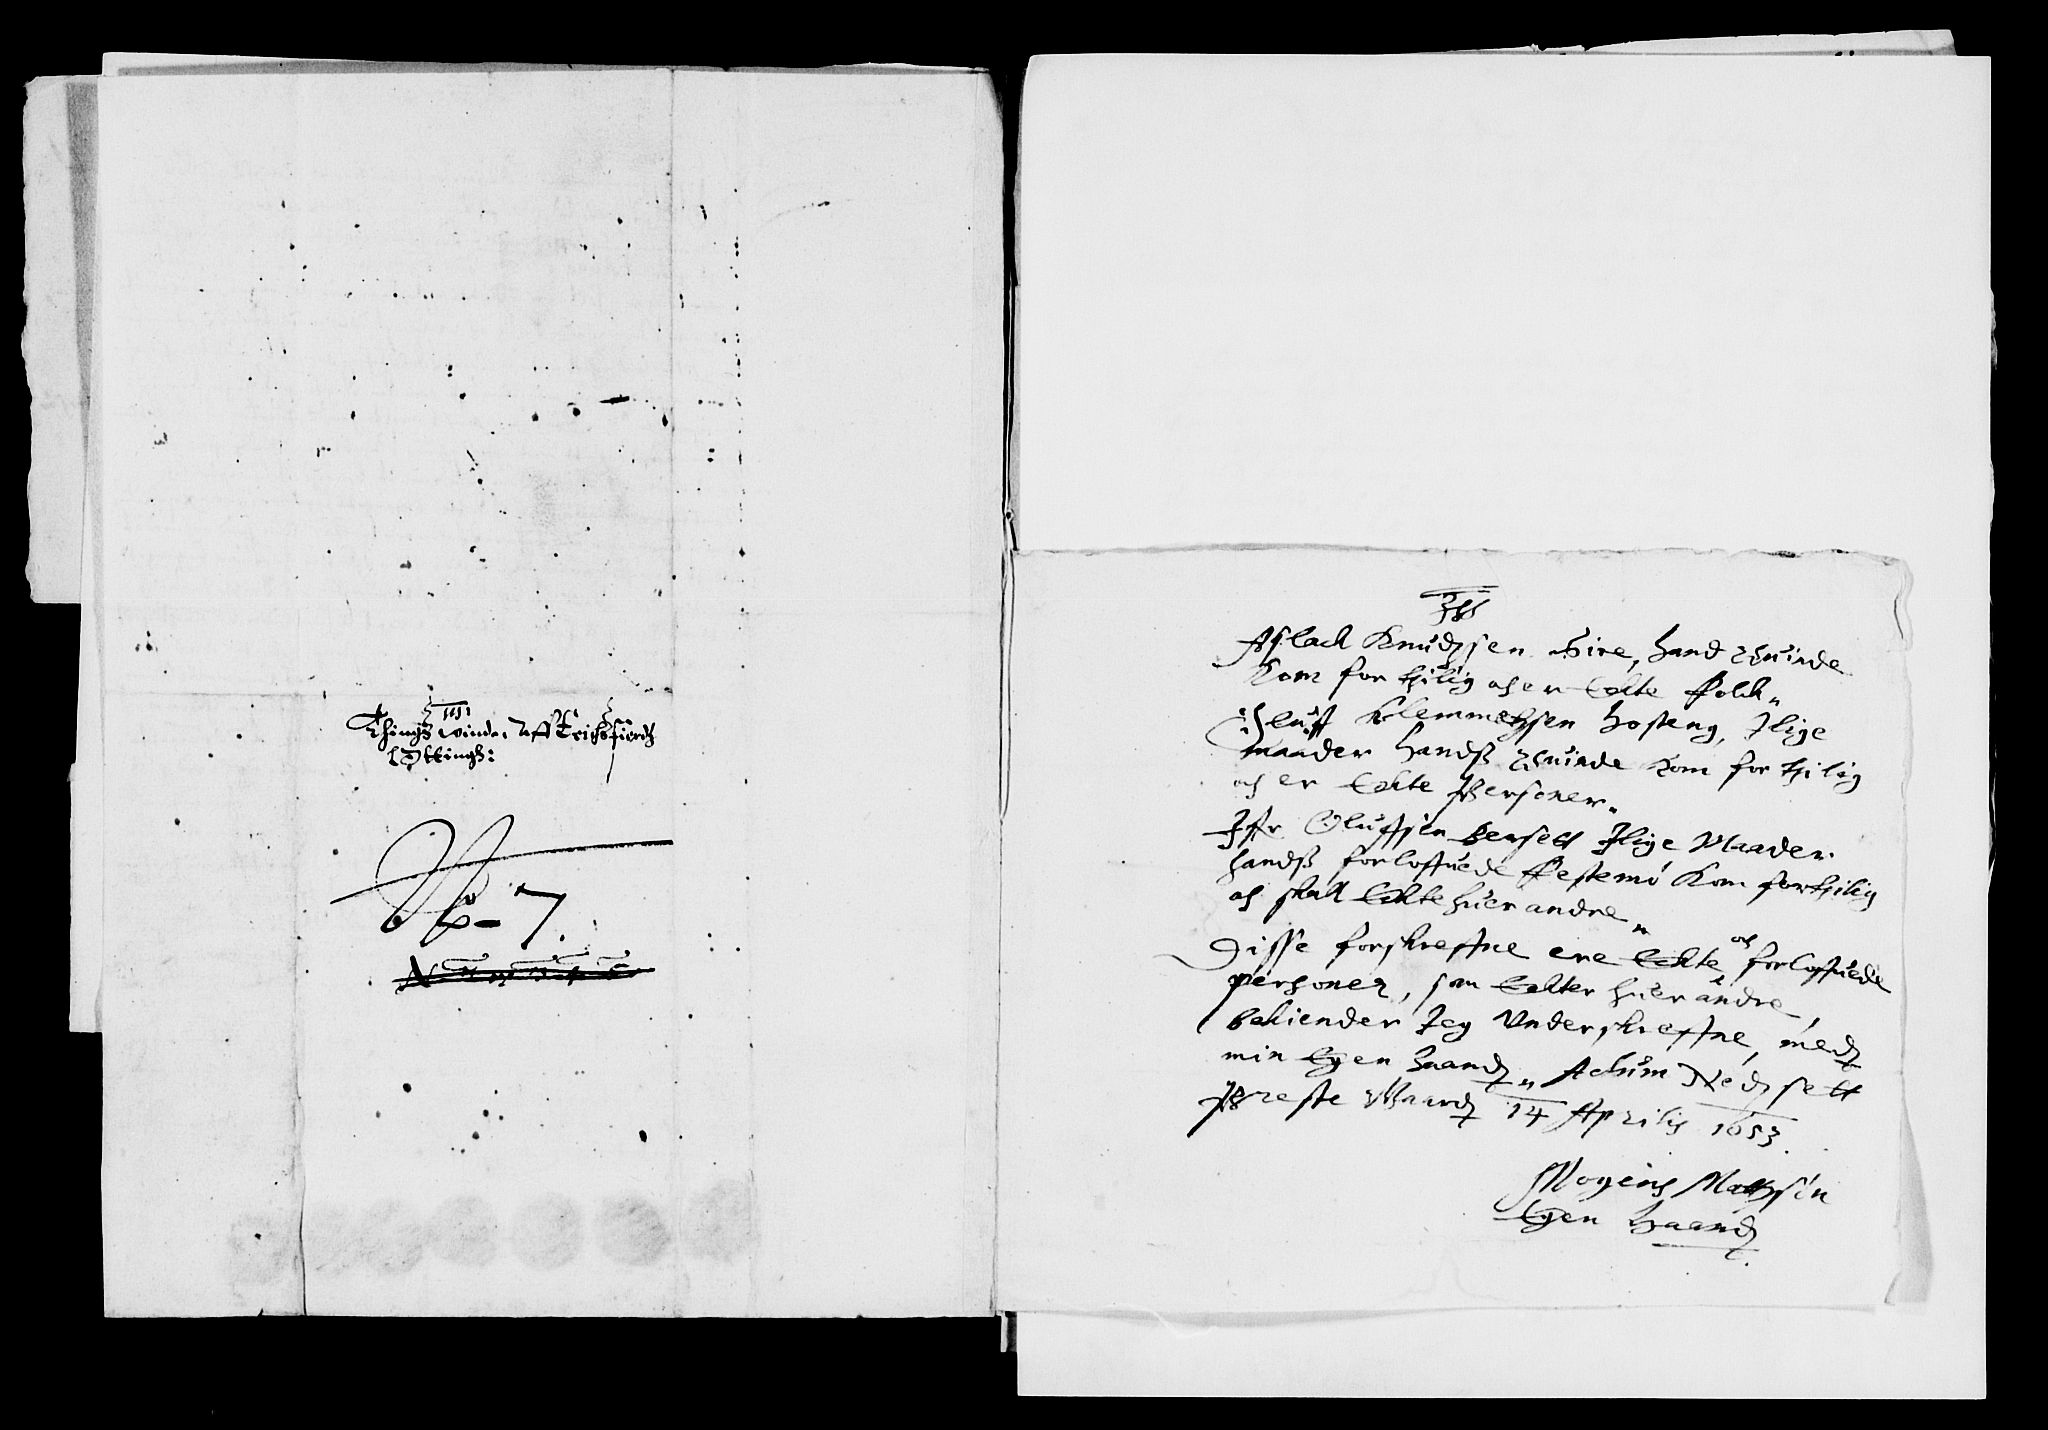 Thingß winde, Aff Erichsfiordß
Ottingh:
No - 7.
Aslach Knudssen Gire, hand quinde
Kom for tjilig och er Eckte folck„
Oluff Klemmetssen hosteng, Jlige
maader handß quinde kom for tjilig
och er Eckte Personer„
Jffr Oluffsen Bersett Jlige Maader
handß forloffuede festemö kom for tjilig
och skall Eckte huer andre„
Disse forskreffne ere Eckte och forloffuede
personer, som Eckter huer andre,
bekiender Jeg Underskreffne, med
min Egen haand„ Actum Nedsett
Preste Gaard 14 Aprilis 1653.
Mogens Matssen
Egen haand